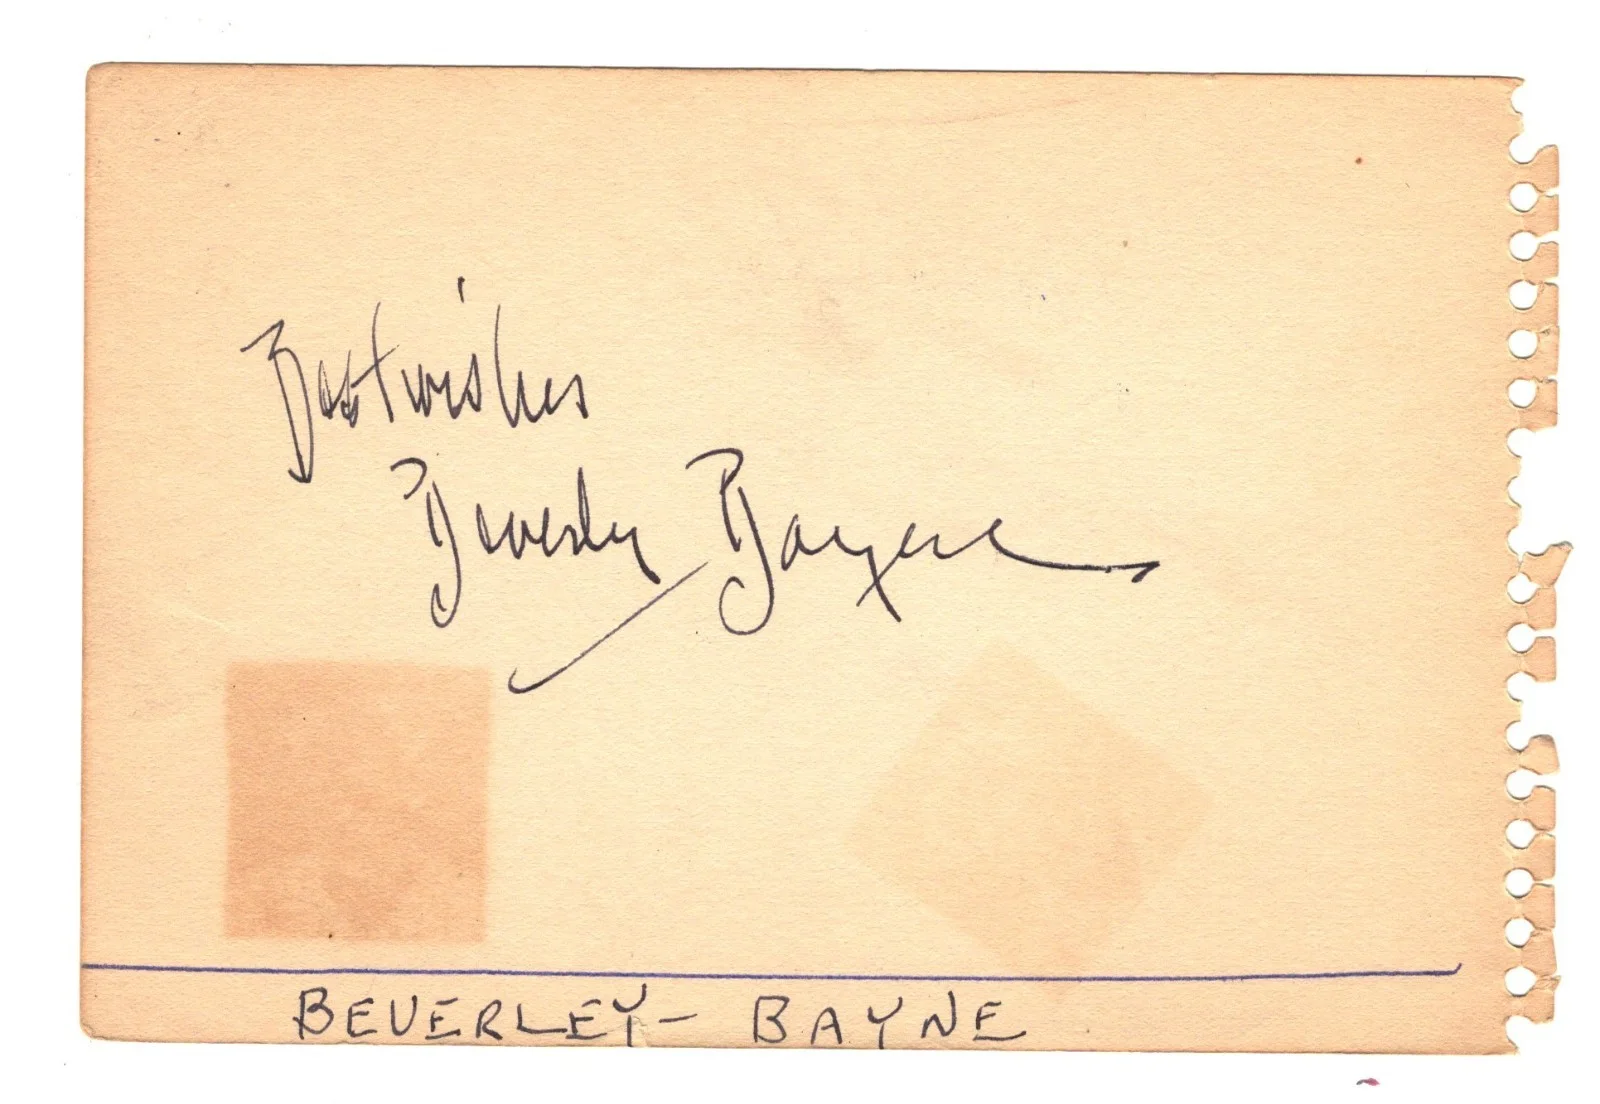 Best wishes
Beverly Bayne
BEVERLEY- BAYNE